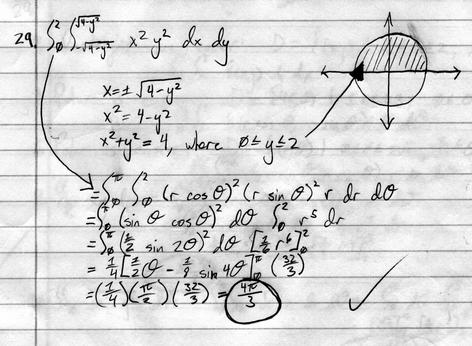 29. ∫_0^2 ∫_{-√(4-y²)}^{√(4-y²)} x² y² dx dy
x = ± √(4-y²)
x² = 4-y²
x²+y² = 4, where 0 ≤ y ≤ 2
= ∫_0^π ∫_0^2 (r cos θ)² (r sin θ)² r dr dθ
= ∫_0^π (sin θ cos θ)² dθ ∫_0^2 r⁵ dr
= ∫_0^π (1/2 sin 2θ)² dθ [1/6 r⁶]_0^2
= 1/4 [1/2 θ - 1/8 sin 4θ]_0^π (32/3)
= (1/4)(π/2)(32/3) = 4π/3